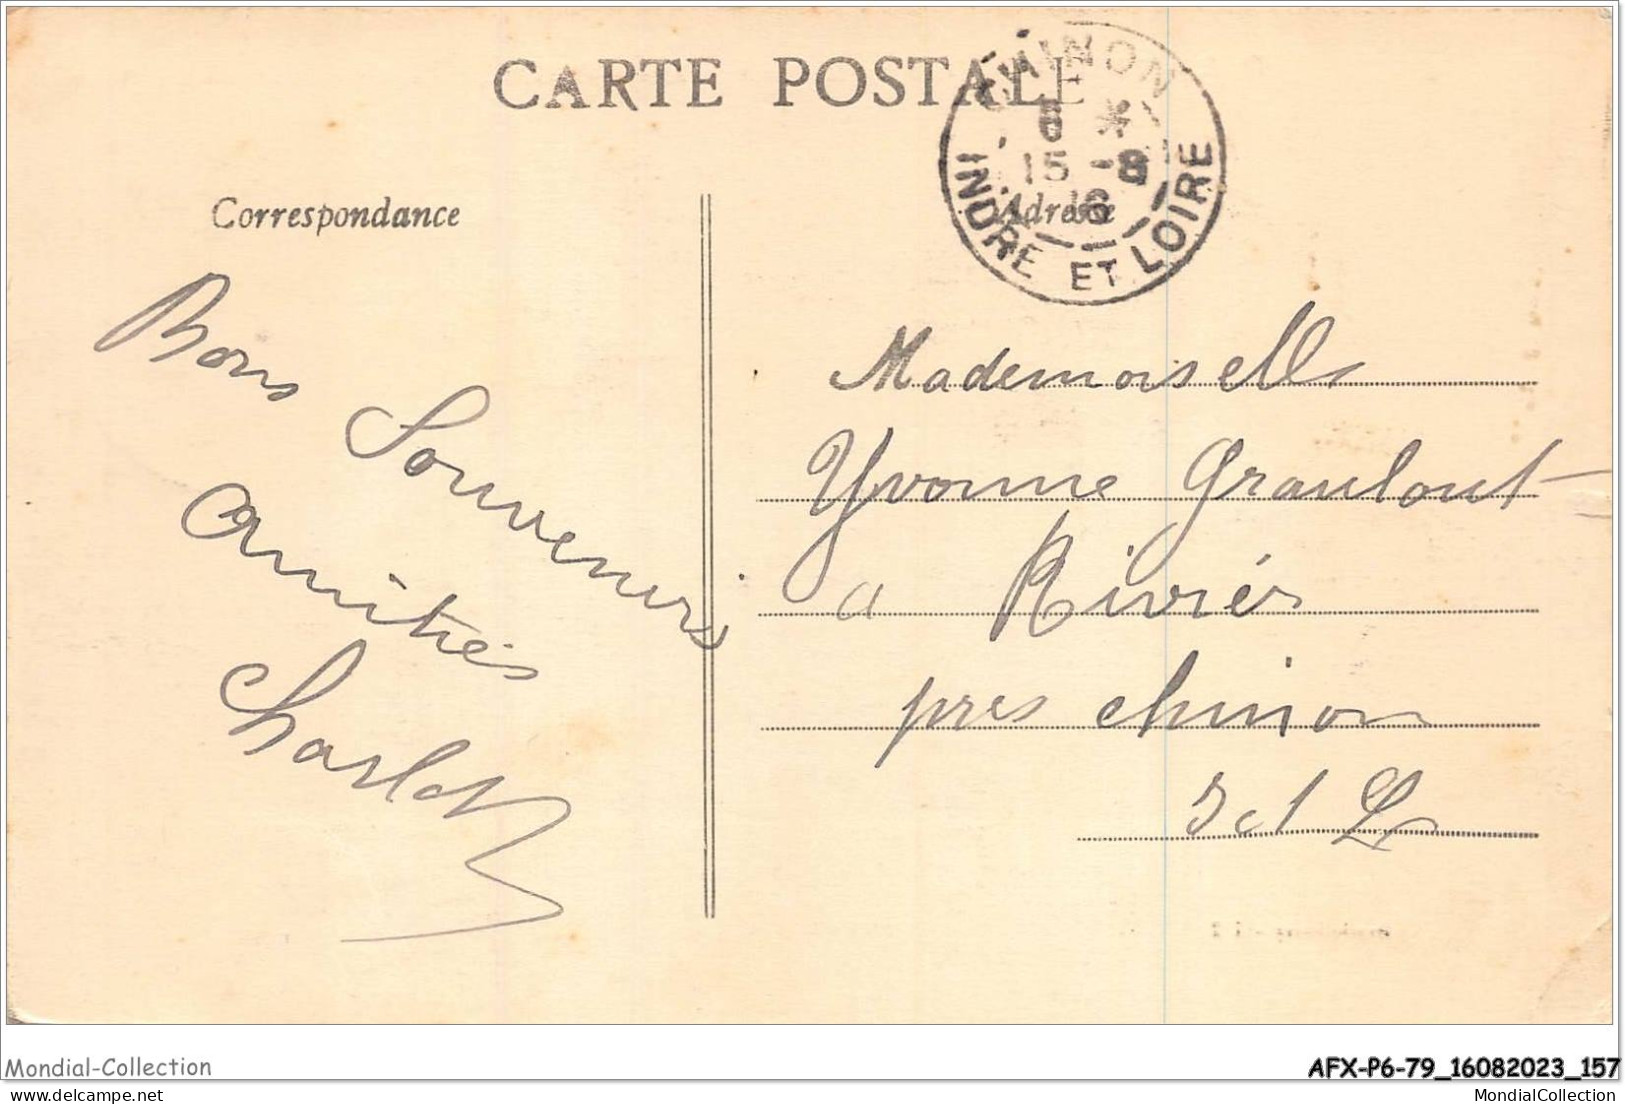 CARTE POSTALE
CHINON
6 *
15 - 8
16
INDRE ET LOIRE
Correspondance
Adresse
Bons Souvenirs
Amitiés
Charlot
Mademoiselle
Yvonne Graulout
a Rivière
près Chinon
I et L
Mondial-Collection
AFX-P6-79_16082023_157
delcampe.net
MondialCollection